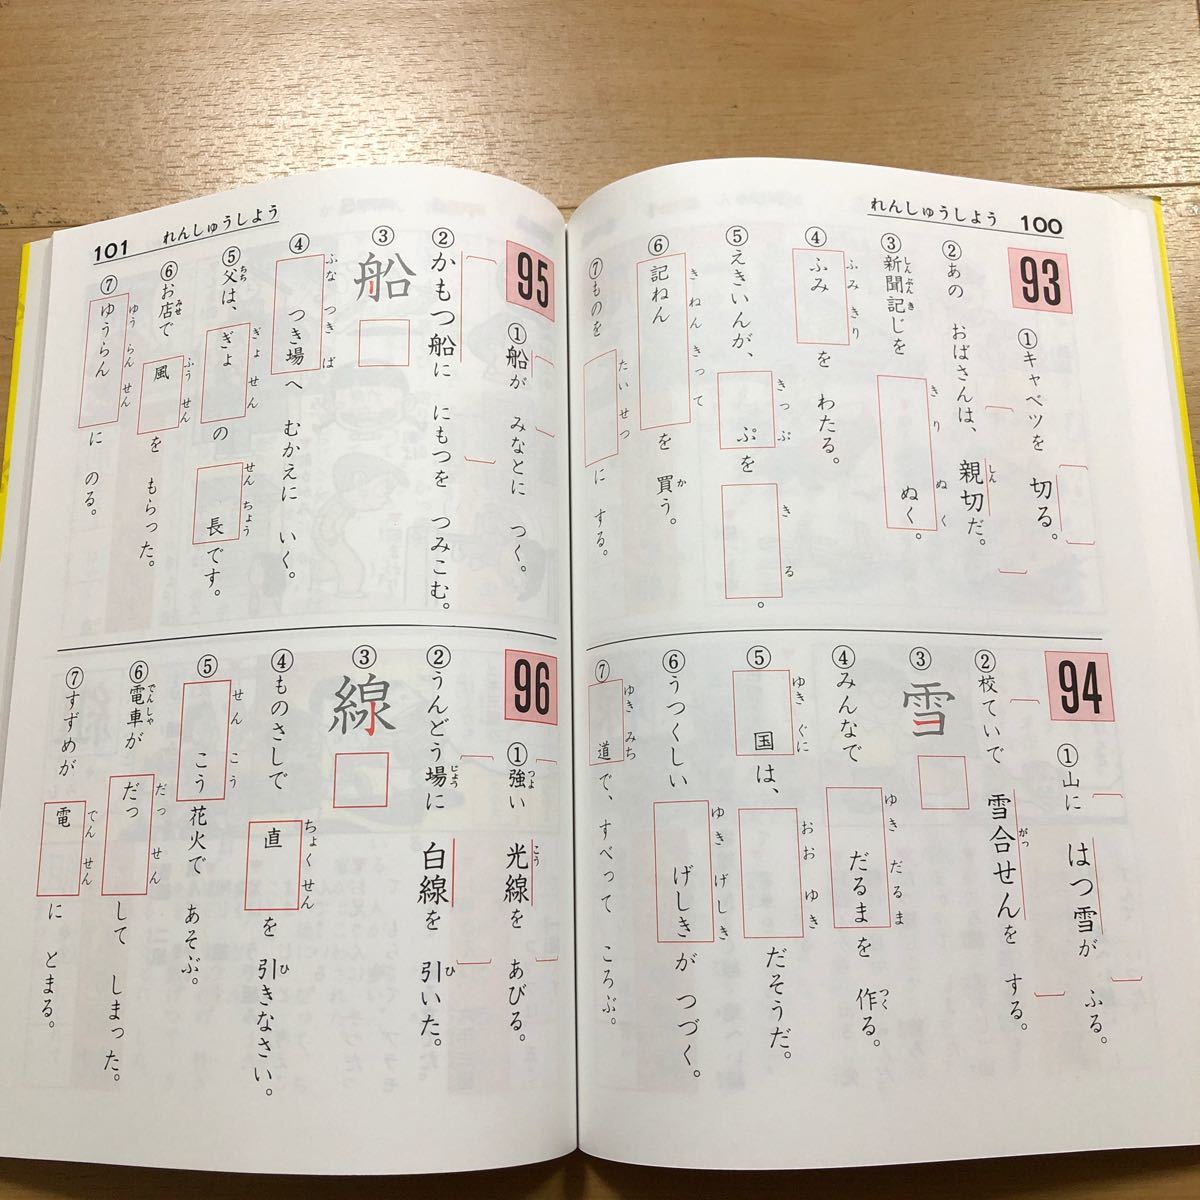 れんしゅうしよう 100
93
①キャベツを 切る。
②あの おばさんは、親切だ。
しん
③新聞記じを ぬく。
しんぶんき
きりぬく
④ふみを わたる。
ふみきり
⑤えきいんが、ぷを 。
きっぷ
きる
⑥記ねんを 買う。
きねんきって
か
⑦ものを に する。
たいせつ
94
①山に はつ雪が ふる。
②校ていで 雪合せんを する。
がっ
③雪
④みんなで だるまを 作る。
ゆきだるま
つく
⑤国は、だそうだ。
ゆきぐに
おおゆき
⑥うつくしい げしきが つづく。
ゆきげしき
⑦道で、すべって ころぶ。
ゆきみち
れんしゅうしよう 101
95
①船が みなとに つく。
②かもつ船に にもつを つみこむ。
③船
④つき場へ むかえに いく。
ふなつきば
⑤父は、ぎょの 長です。
ちち
ぎょせん
せんちょう
⑥お店で 風を もらった。
みせ
ふうせん
⑦ゆうらんに のる。
ゆうらんせん
96
①強い 光線を あびる。
つよ
こう
②うんどう場に 白線を 引いた。
じょう
ひ
③線
④ものさしで 直を 引きなさい。
ちょくせん
ひ
⑤こう花火で あそぶ。
せんこう
⑥電車が だっして しまった。
でんしゃ
だっせん
⑦すずめが 電に とまる。
でんせん